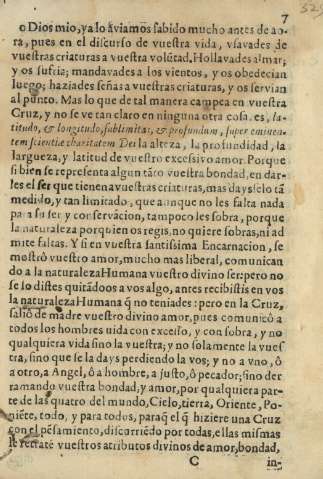 7
o Dios mio, ya lo aviamos sabido mucho antes de ao-
ra, pues en el discurso de vuestra vida, vsavades de
vuestras criaturas a vuestra volũtad. Hollavades al mar;
y os sufria; mandavades a los vientos, y os obedecian
luego; haziades señas a vuestras criaturas, y os servian
al punto. Mas lo que de tal manera campea en vuestra
Cruz, y no se ve tan claro en ninguna otra cosa. es, la-
titudo, & longitudo, sublimitas, & profundum, super eminen-
tem scientiæ charitatem Dei la alteza, la profundidad, la
largueza, y latitud de vuestro excessivo amor. Porque
si bien se representa algun tãto vuestra bondad, en dar-
les el ser que tienen a vuestras criaturas, mas dayselo tã
medido, y tan limitado, que aunque no les falta nada
para su ser y conservacion, tampoco les sobra, porque
la naturaleza por quien os regis, no quiere sobras, ni ad
mite faltas. Y si en vuestra santissima Encarnacion, se
mostrò vuestro amor, mucho mas liberal, comunican
do a la naturaleza Humana vuestro divino ser: pero no
se lo distes quitãdoos a vos algo, antes recibistis en vos
la naturaleza Humana q̃ no teniades: pero en la Cruz,
saliò de madre vuestro divino amor, pues comunicò a
todos los hombres vida con excesso, y con sobra, y no
qualquiera vida sino la vuestra; y no solamente la vues
tra, sino que se la days perdiendo la vos; y no a vno, ô
a otro, a Angel, ô a hombre, a justo, ô pecador; sino der
ramando vuestra bondad, y amor, por qualquiera par-
te de las quatro del mundo, Cielo, tierra, Oriente, Po-
niẽte, todo, y para todos, paraq̃ el q̃ hiziere una Cruz
con el pẽsamiento, discurriẽdo por todas, ellas mismas
le retratẽ vuestros atributos divinos de amor, bondad,
C in-